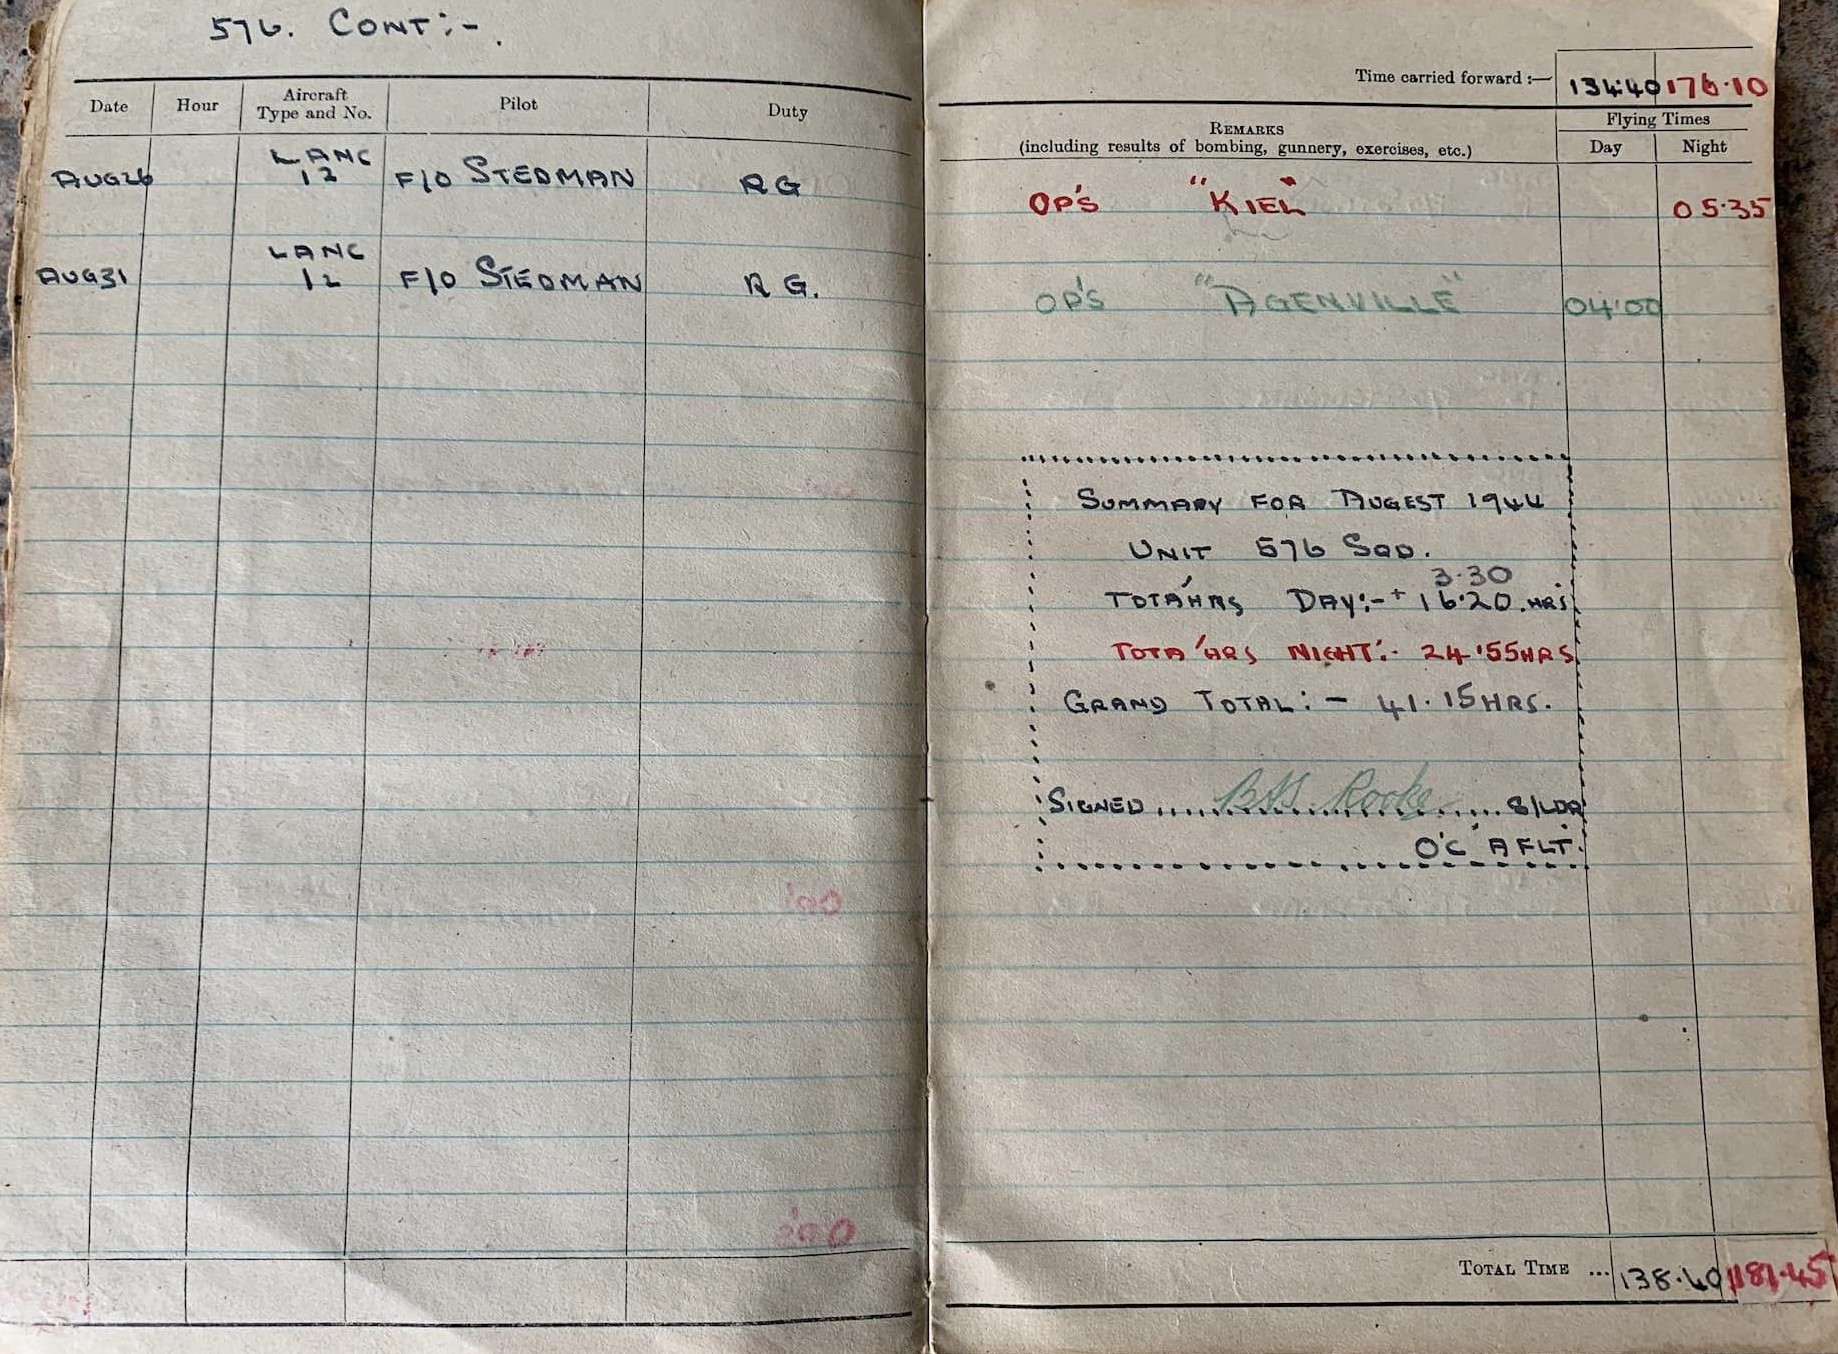 576. CONT:-.
Date Hour Aircraft Type and No. Pilot Duty
AUG26 LANC 12 F/O STEDMAN RG
AUG31 LANC 12 F/O STEDMAN R G.
Time carried forward :— 134.40 176.10
REMARKS
(including results of bombing, gunnery, exercises, etc.)
Flying Times
Day Night
OP'S "KIEL" 05.35
OP'S "AGENVILLE" 04.00
SUMMARY FOR AUGEST 1944
UNIT 576 SQD.
3.30
TOTA'HRS DAY:-+ 16.20.HRS
TOTA'HRS NIGHT:- 24.55HRS
GRAND TOTAL:- 41.15HRS.
SIGNED..... Rooke ..... S/LDR
O'C 'A FLT.
TOTAL TIME ... 138.40 181.45